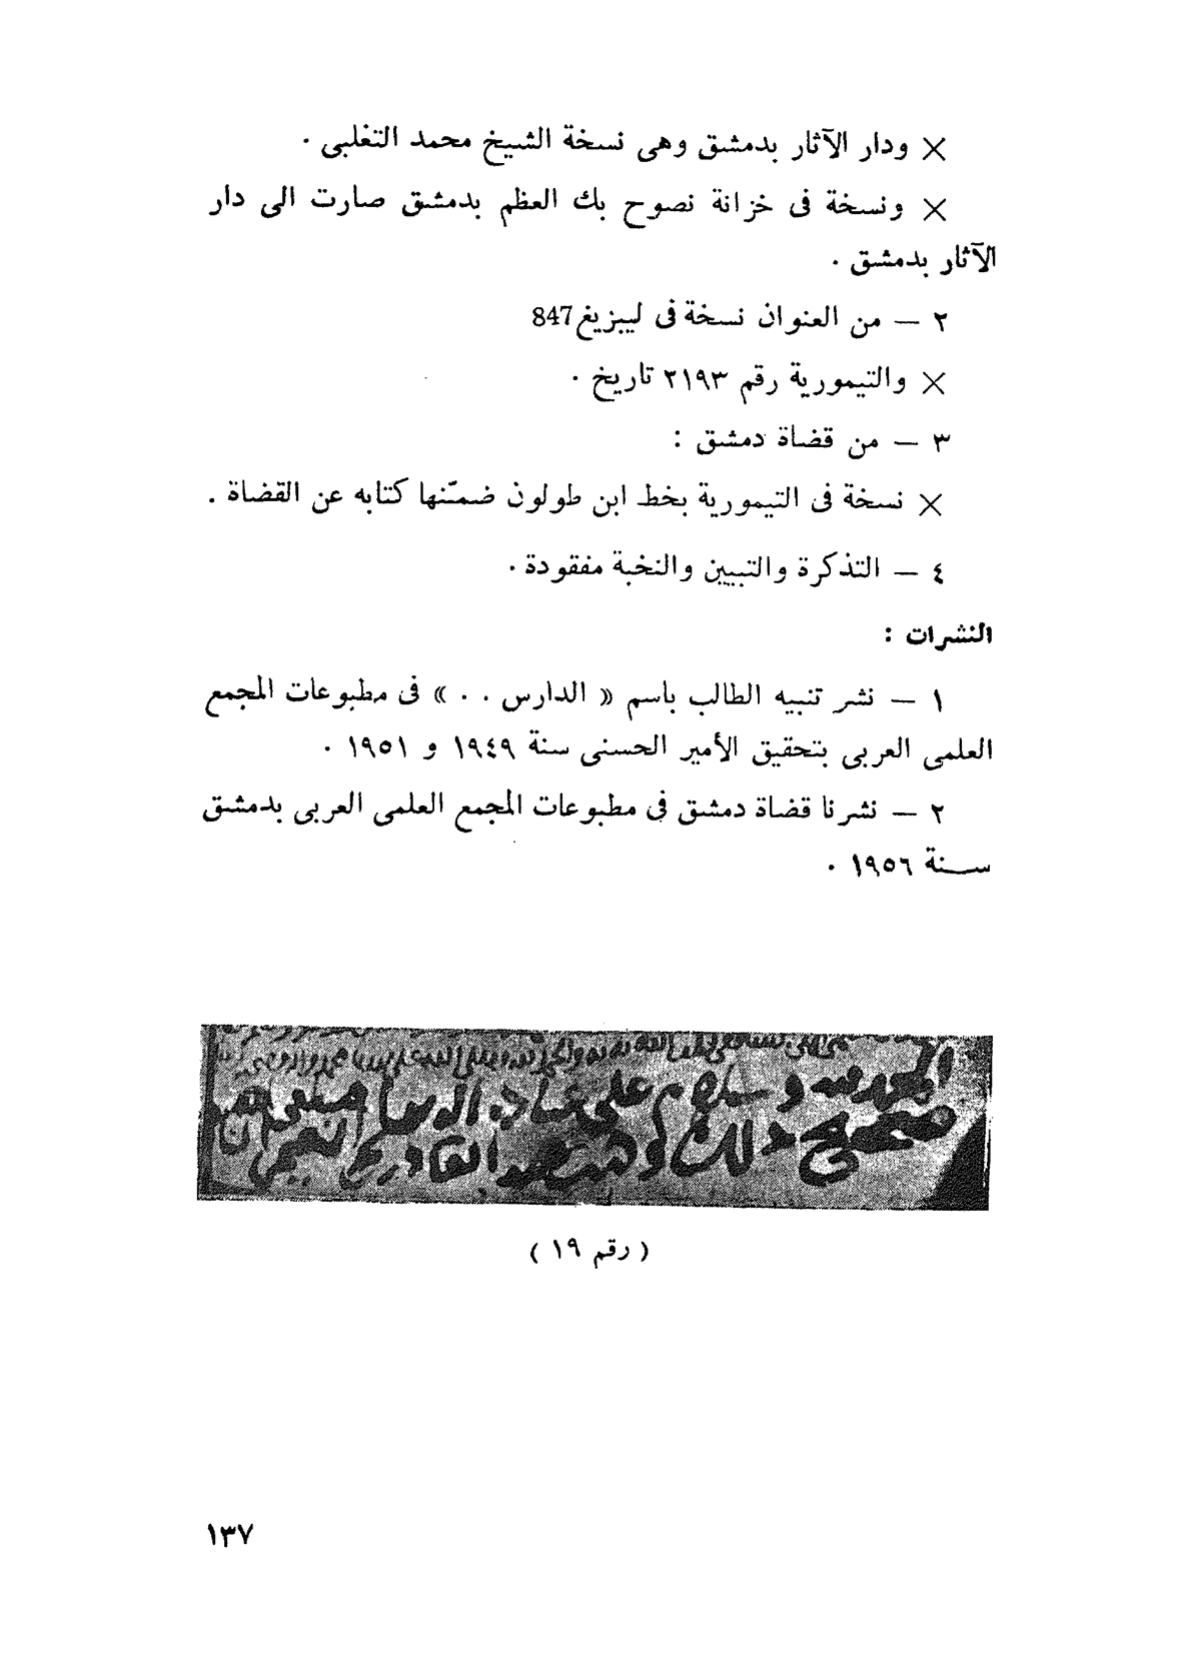 × ودار الآثار بدمشق وهى نسخة الشيخ محمد التغلبى .
× ونسخة فى خزانة نصوح بك العظم بدمشق صارت الى دار
الآثار بدمشق .
٢ — من العنوان نسخة فى ليبزيغ 847
× والتيمورية رقم ٢١٩٣ تاريخ .
٣ — من قضاة دمشق :
× نسخة فى التيمورية بخط ابن طولون ضمّنها كتابه عن القضاة .
٤ — التذكرة والتبيين والنخبة مفقودة .
النشرات :
١ — نشر تنبيه الطالب باسم « الدارس . . » فى مطبوعات المجمع
العلمى العربى بتحقيق الأمير الحسنى سنة ١٩٤٩ و ١٩٥١ .
٢ — نشرنا قضاة دمشق فى مطبوعات المجمع العلمى العربى بدمشق
سنة ١٩٥٦ .
وسلام على عباده الذين اصطفى
صحيح ذلك وكتبه عبد القادر النعيمى
( رقم ١٩ )
١٣٧